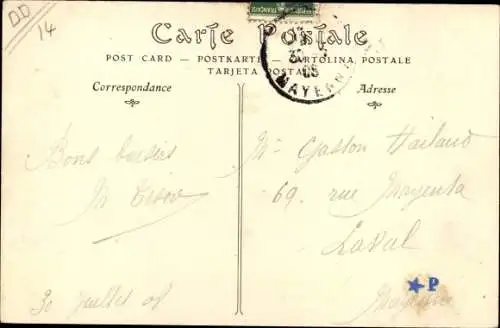 DD
14
Carte Postale
POST CARD — POSTKARTE — CARTOLINA POSTALE
TARJETA POSTAL
MAYENNE
Correspondance
Adresse
Bons baisers
M
30 Juillet 08
Mr Gaston
69. rue Magenta
Laval
Mayenne
★P